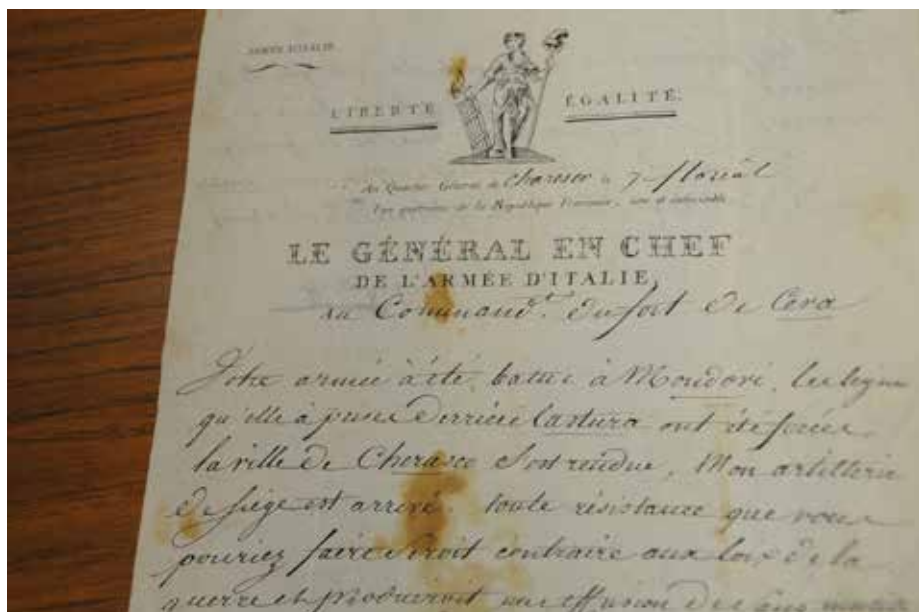 ARMÉE D'ITALIE.
LIBERTÉ ÉGALITÉ.
Au Quartier Général de Charesco le 7 floréal
l'an quatrième de la République Française, une et indivisible.
LE GÉNÉRAL EN CHEF
DE L'ARMÉE D'ITALIE,
au Command.t du fort de Ceva
Votre armée à été battue à Mondovi, les lignes
qu'elle à prises derrière lastura ont été forcées
la ville de Cherasco s'est rendue, Mon artillerie
de siège est arrivé. toute résistance que vous
pouriez faire seroit contraire aux loix de la
guerre et produiroit une effusion de